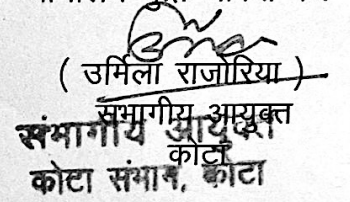 ( उर्मिला राजोरिया )
संभागीय आयुक्त
कोटा
संभागीय आयुक्त
कोटा संभाग, कोटा